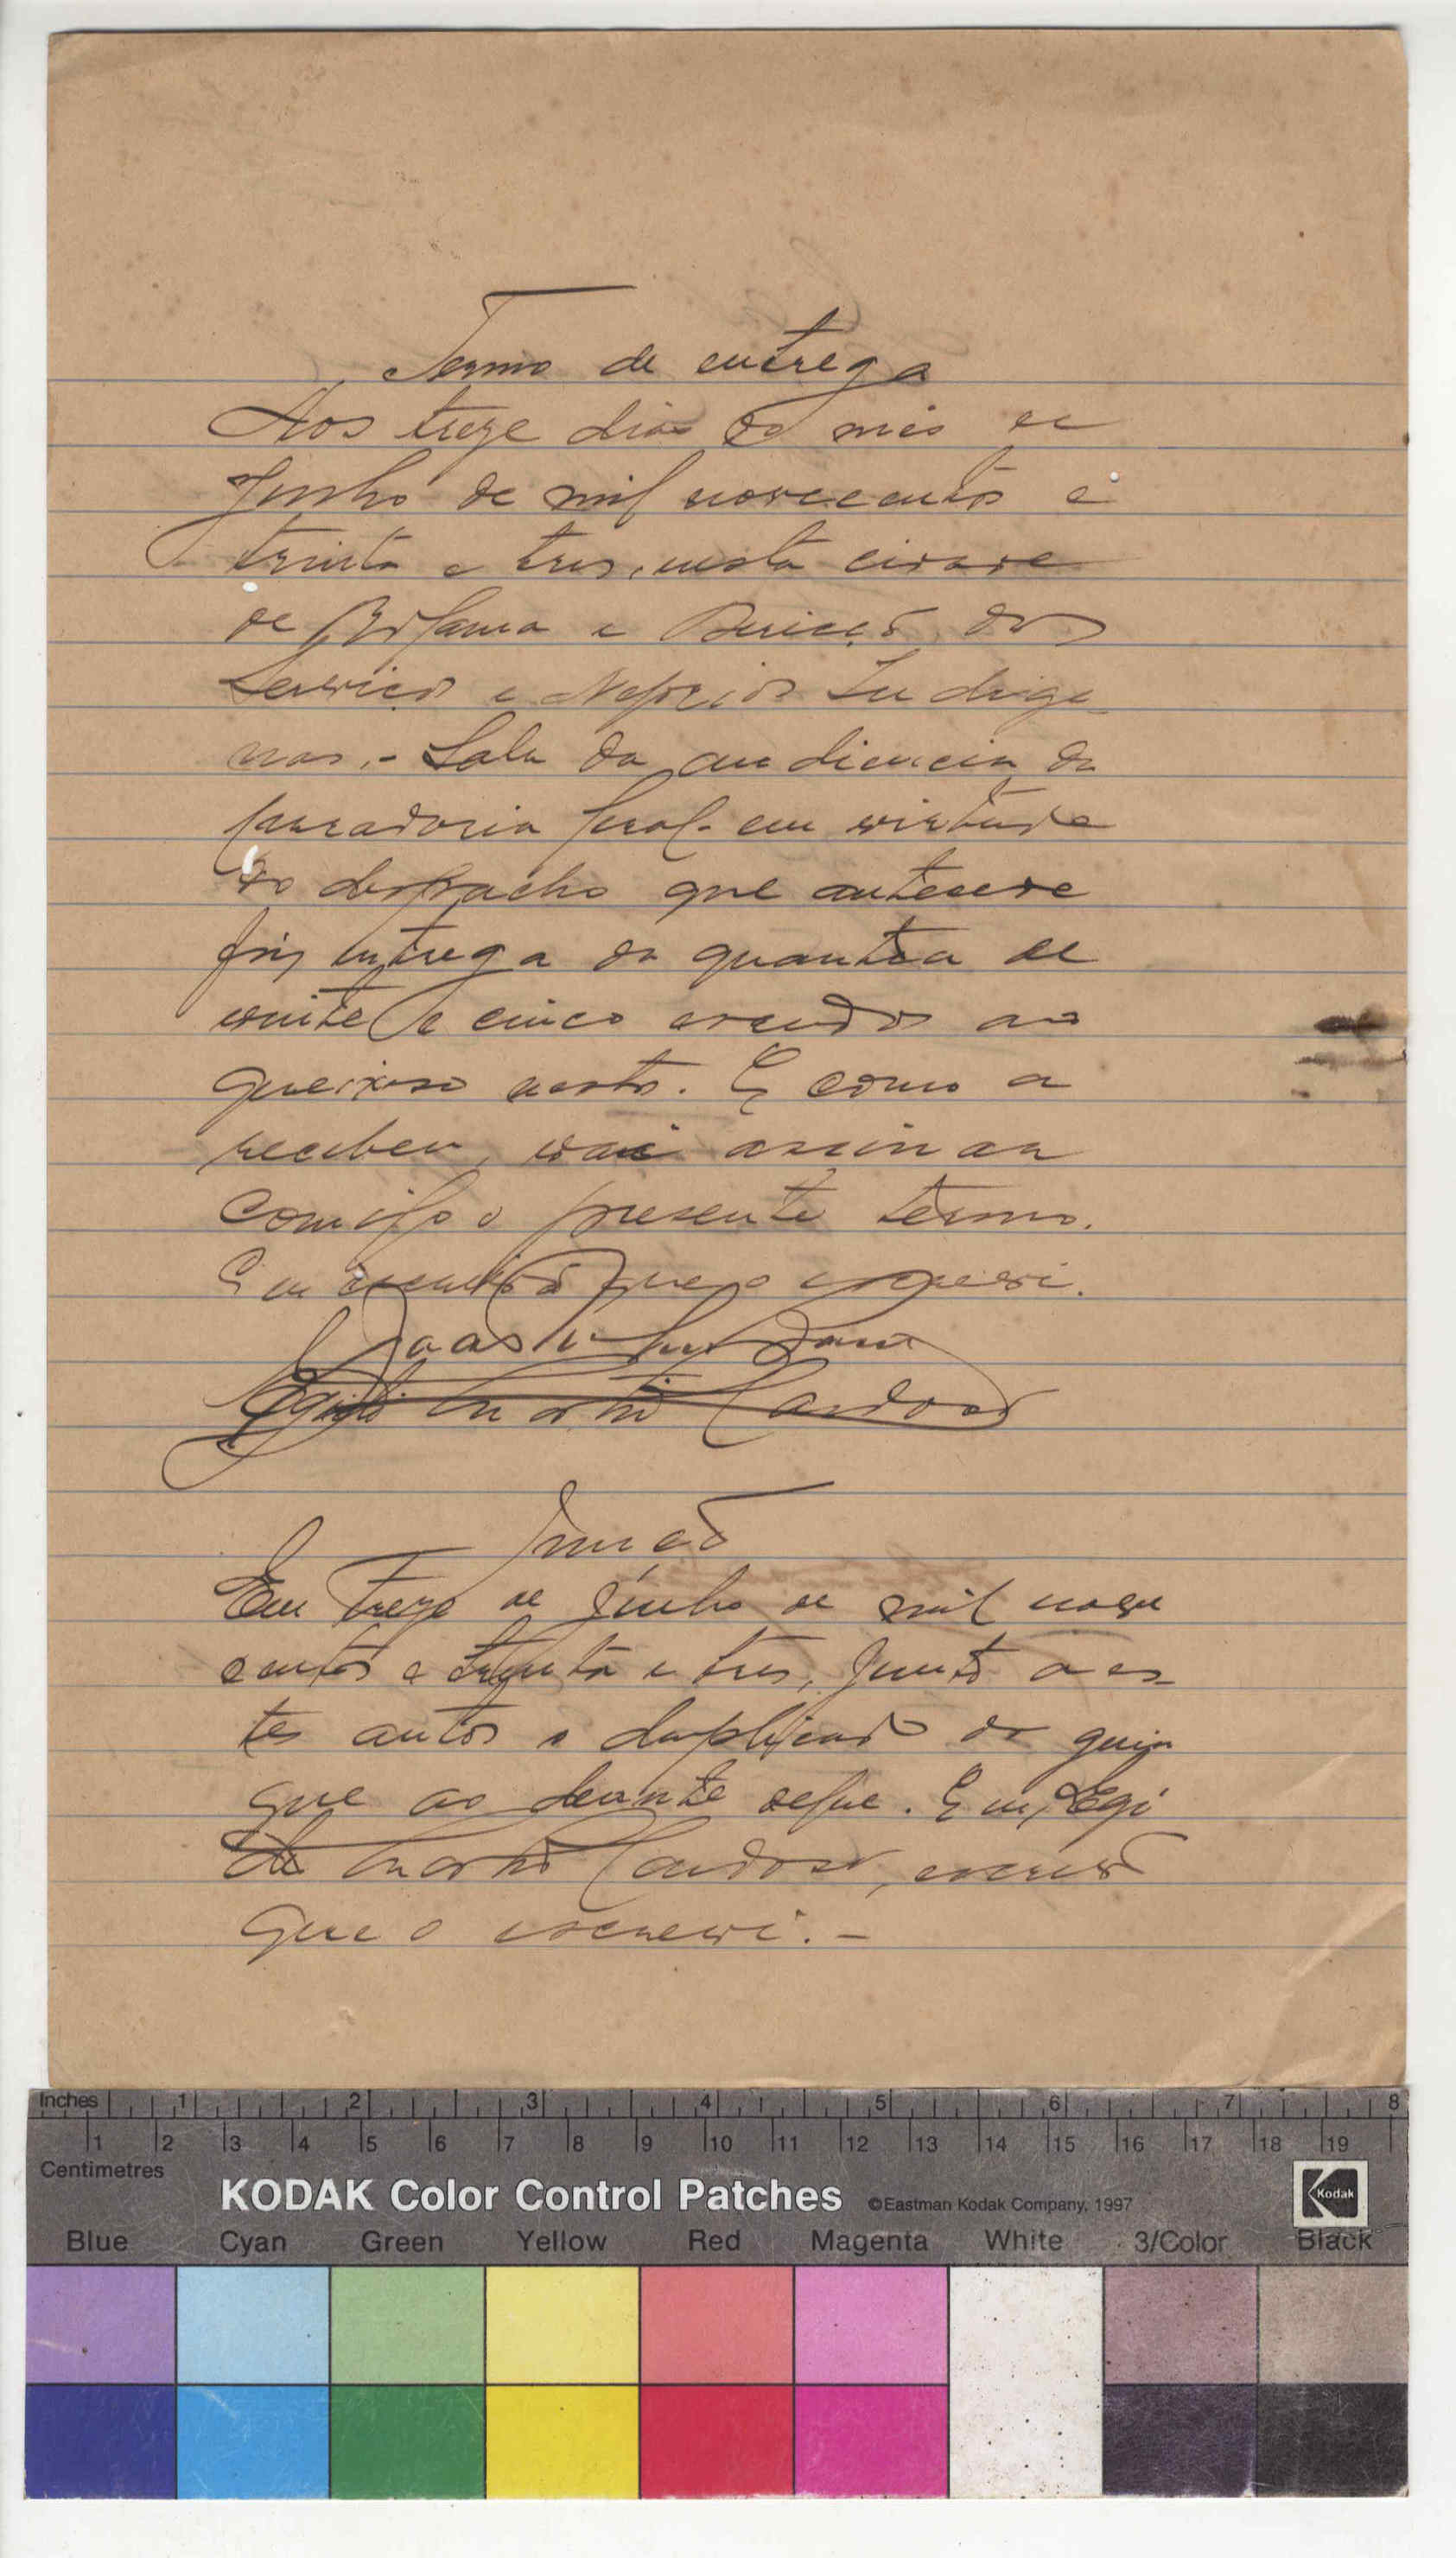 Termo de entrega
Aos treze dias do mês de
Junho de mil novecentos e
trinta e tres, nesta cidade
de Bolama e Direcção dos
Serviços e Negocios Indige-
nas, - Sala da audiencia da
Curadoria Geral - em virtude
do despacho que antecede
fiz entrega da quantia de
vinte e cinco escudos ao
queixoso nestes. E como a
recebeu, vai assinar
comigo o presente termo.
E eu escrivão que o escrevi.
Egidio Martins Cardoso
Junção
Em treze de Junho de mil nove
centos e trinta e tres, junto a es-
tes autos o duplicado da guia
que ao deante segue. E eu, Egi
dio Martins Cardoso, escrivão
que o escrevi. -
Inches 1 2 3 4 5 6 7 8
1 2 3 4 5 6 7 8 9 10 11 12 13 14 15 16 17 18 19
Centimetres
KODAK Color Control Patches ©Eastman Kodak Company, 1997 Kodak
Blue Cyan Green Yellow Red Magenta White 3/Color Black